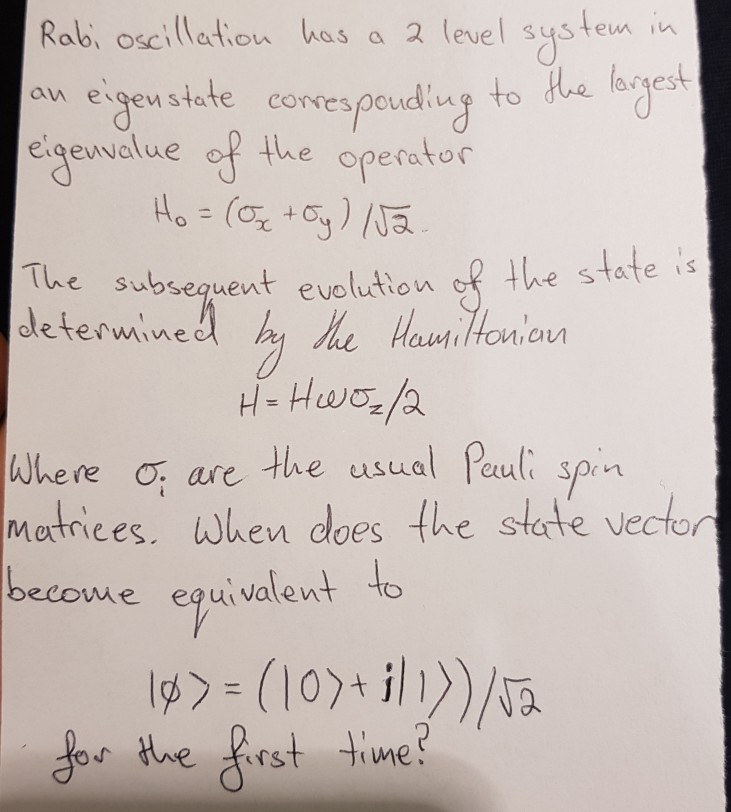 Rabi oscillation has a 2 level system in
an eigenstate corresponding to the largest
eigenvalue of the operator
H₀ = (σₓ + σᵧ)/√2.
The subsequent evolution of the state is
determined by the Hamiltonian
H = HωσZ/2
Where σᵢ are the usual Pauli spin
matrices. When does the state vector
become equivalent to
|ø> = (|0> + i|1>)/√2
for the first time?